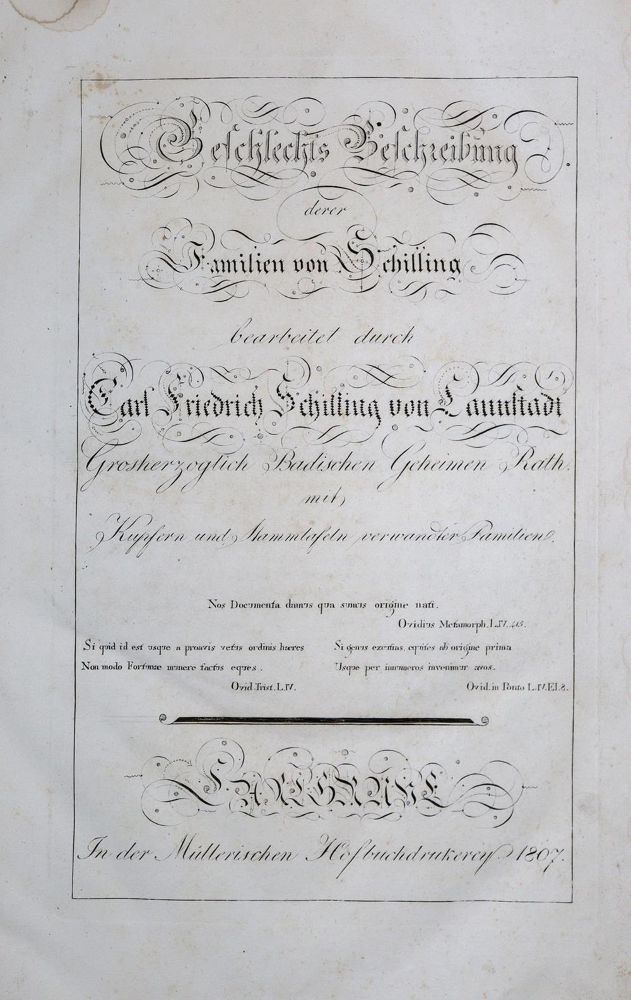 Geschlechts Beschreibung
derer
Familien von Schilling
bearbeitet durch
Carl Friedrich Schilling von Cannstadt
Grosherzoglich Badischen Geheimen Rath.
mit
Kupfern und Stammtafeln verwandter Familien.
Nos Documenta damus qua simus origine nati.
Ovidius Metamorph. L.IV.
Si quid id est usque a proavis vetus ordinis haeres
Non modo Fortunae munere factus eques.
Ovid. Trist. L.IV.
Si genus excutias, equites ab origine prima
Usque per innumeros invenimur avos.
Ovid. in Ponto L.IV.El.8.
CARLSRUHE
In der Müllerischen Hofbuchdrukerey 1807.